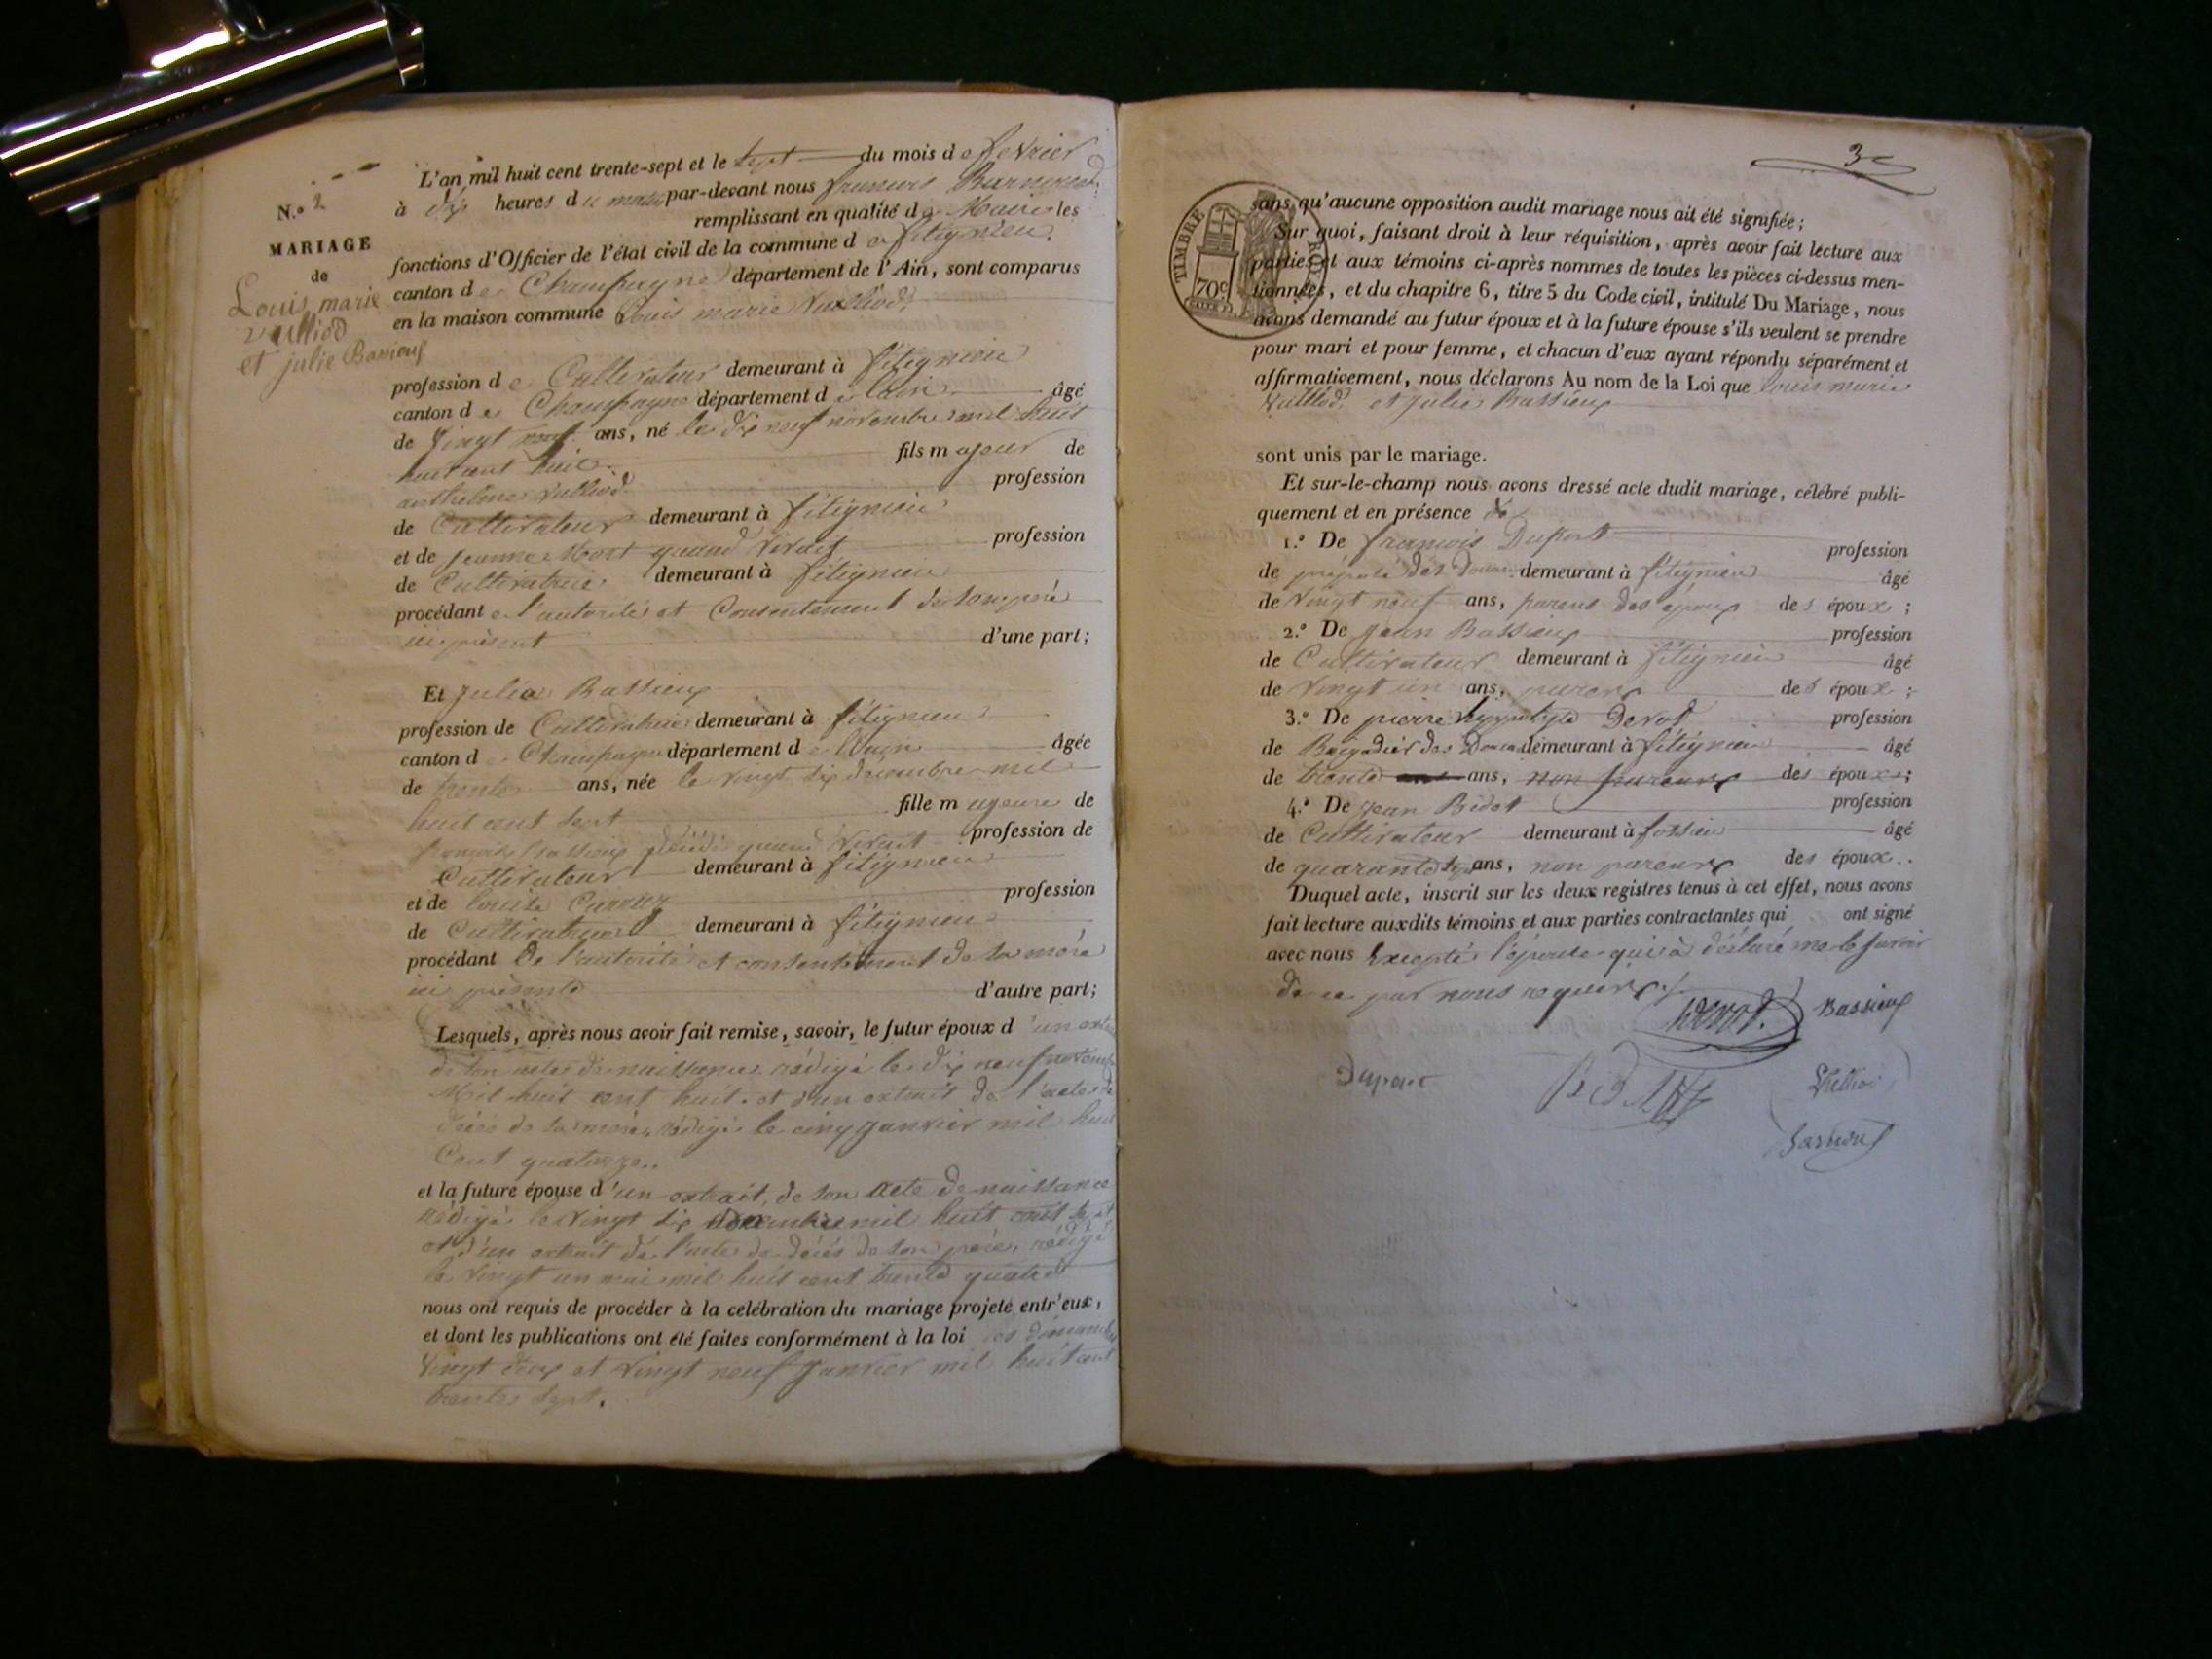 N.º 2
MARIAGE
de
Louis marie
vulliod
et julie Bassieux
L'an mil huit cent trente-sept et le sept du mois de fevrier
à dix heures du matin par-devant nous francois
remplissant en qualité de Maire les
fonctions d'Officier de l'état civil de la commune de fitignieu
canton de Champagne département de l'Ain, sont comparus
en la maison commune Louis marie Vulliod,
profession de Cultivateur demeurant à fitignieu
canton de Champagne département de l'ain âgé
de Vingt neuf ans, né le dix neuf novembre mil huit
huit cent huit fils majeur de
anthelme Vulliod profession
de Cultivateur demeurant à fitignieu
et de jeanne Mort quand vivait profession
de Cultivatrice demeurant à fitignieu
procédant de l'autorité et Consentement de son père
ici présent d'une part;
Et julie Bassieux
profession de Cultivatrice demeurant à fitignieu
canton de Champagne département de l'ain âgée
de trente ans, née le vingt six décembre mil
huit cent sept fille majeure de
françois Bassieux décédé quand vivait profession de
Cultivateur demeurant à fitignieu
et de louise profession
de Cultivatrice demeurant à fitignieu
procédant De l'autorité et consentement de sa mère
ici présente d'autre part;
Lesquels, après nous avoir fait remise, savoir, le futur époux d'un extrait
de son acte de naissance rédigé le dix neuf novembre
Mil huit cent huit. et d'un extrait de l'acte de
décès de sa mère, rédigé le cinq janvier mil huit
Cent quatorze..
et la future épouse d'un extrait, de son acte de naissance
rédigé le vingt six décembre mil huit cent sept
et d'un extrait de l'acte de décès de son père, rédigé
le vingt un mai mil huit cent trente quatre
nous ont requis de procéder à la celébration du mariage projeté entr'eux,
et dont les publications ont été faites conformément à la loi les dimanches
vingt deux et vingt neuf janvier mil huit cent
trente sept.
3
TIMBRE ROYAL
70c
sans qu'aucune opposition audit mariage nous ait été signifiée;
Sur quoi, faisant droit à leur réquisition, après avoir fait lecture aux
parties et aux témoins ci-après nommes de toutes les pièces ci-dessus men-
tionnées, et du chapitre 6, titre 5 du Code civil, intitulé Du Mariage, nous
avons demandé au futur époux et à la future épouse s'ils veulent se prendre
pour mari et pour femme, et chacun d'eux ayant répondu séparément et
affirmativement, nous déclarons Au nom de la Loi que Louis marie
Vulliod, et julie Bassieux
sont unis par le mariage.
Et sur-le-champ nous avons dressé acte dudit mariage, célébré publi-
quement et en présence de
1.º De françois Dupont profession
de préposé des Douanes demeurant à fitignieu âgé
de Vingt neuf ans, parens des époux des époux;
2.º De jean Bassieux profession
de Cultivateur demeurant à fitignieu âgé
de Vingt un ans, parens des époux;
3.º De pierre hyppolyte Devot profession
de Brigadier des Douanes demeurant à fitignieu âgé
de trente ans, non parens des époux;
4.º De jean Bidot profession
de Cultivateur demeurant à fossieu âgé
de quarante ans, non parens des époux.
Duquel acte, inscrit sur les deux registres tenus à cet effet, nous avons
fait lecture auxdits témoins et aux parties contractantes qui ont signé
avec nous Excepté l'épouse qui à déclaré ne le savoir
de ce par nous requise./.
Devot.
Bassieux
Dupont